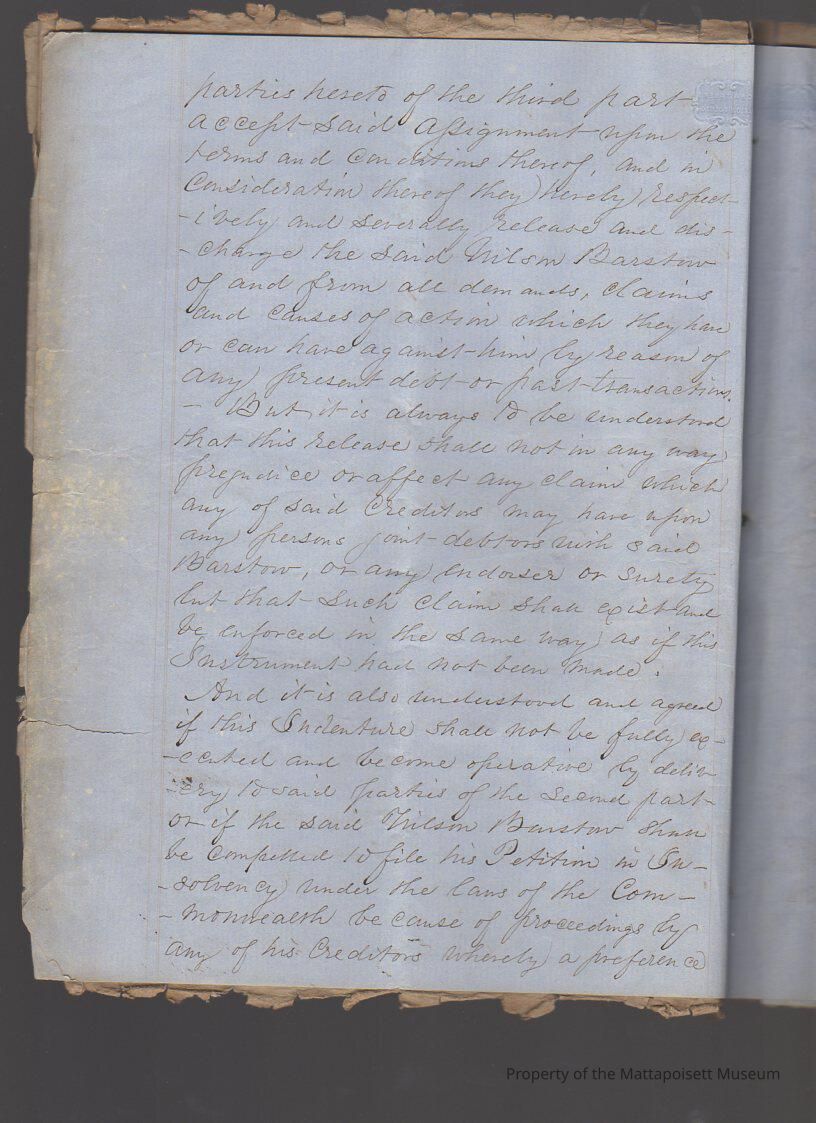 parties hereto of the third part
accept said Assignment upon the
terms and conditions thereof, and in
consideration thereof they hereby respect-
-ively and severally release and dis-
-charge the said Wilson Barstow
of and from all demands, claims
and causes of action which they have
or can have against him by reason of
any present debt or past transaction.
- But it is always to be understood
that this release shall not in any way
prejudice or affect any claim which
any of said Creditors may have upon
any persons joint debtors with said
Barstow, or any endorser or surety
but that such claim shall exist and
be enforced in the same way as if this
Instrument had not been made.
And it is also understood and agreed
if this Indenture shall not be fully ex-
-ecuted and become operative by deliv
-ery to said parties of the second part
or if the said Wilson Barstow shall
be compelled to file his Petition in In-
-solvency under the laws of the Com-
-monwealth because of proceedings by
any of his Creditors whereby a preference
Property of the Mattapoisett Museum